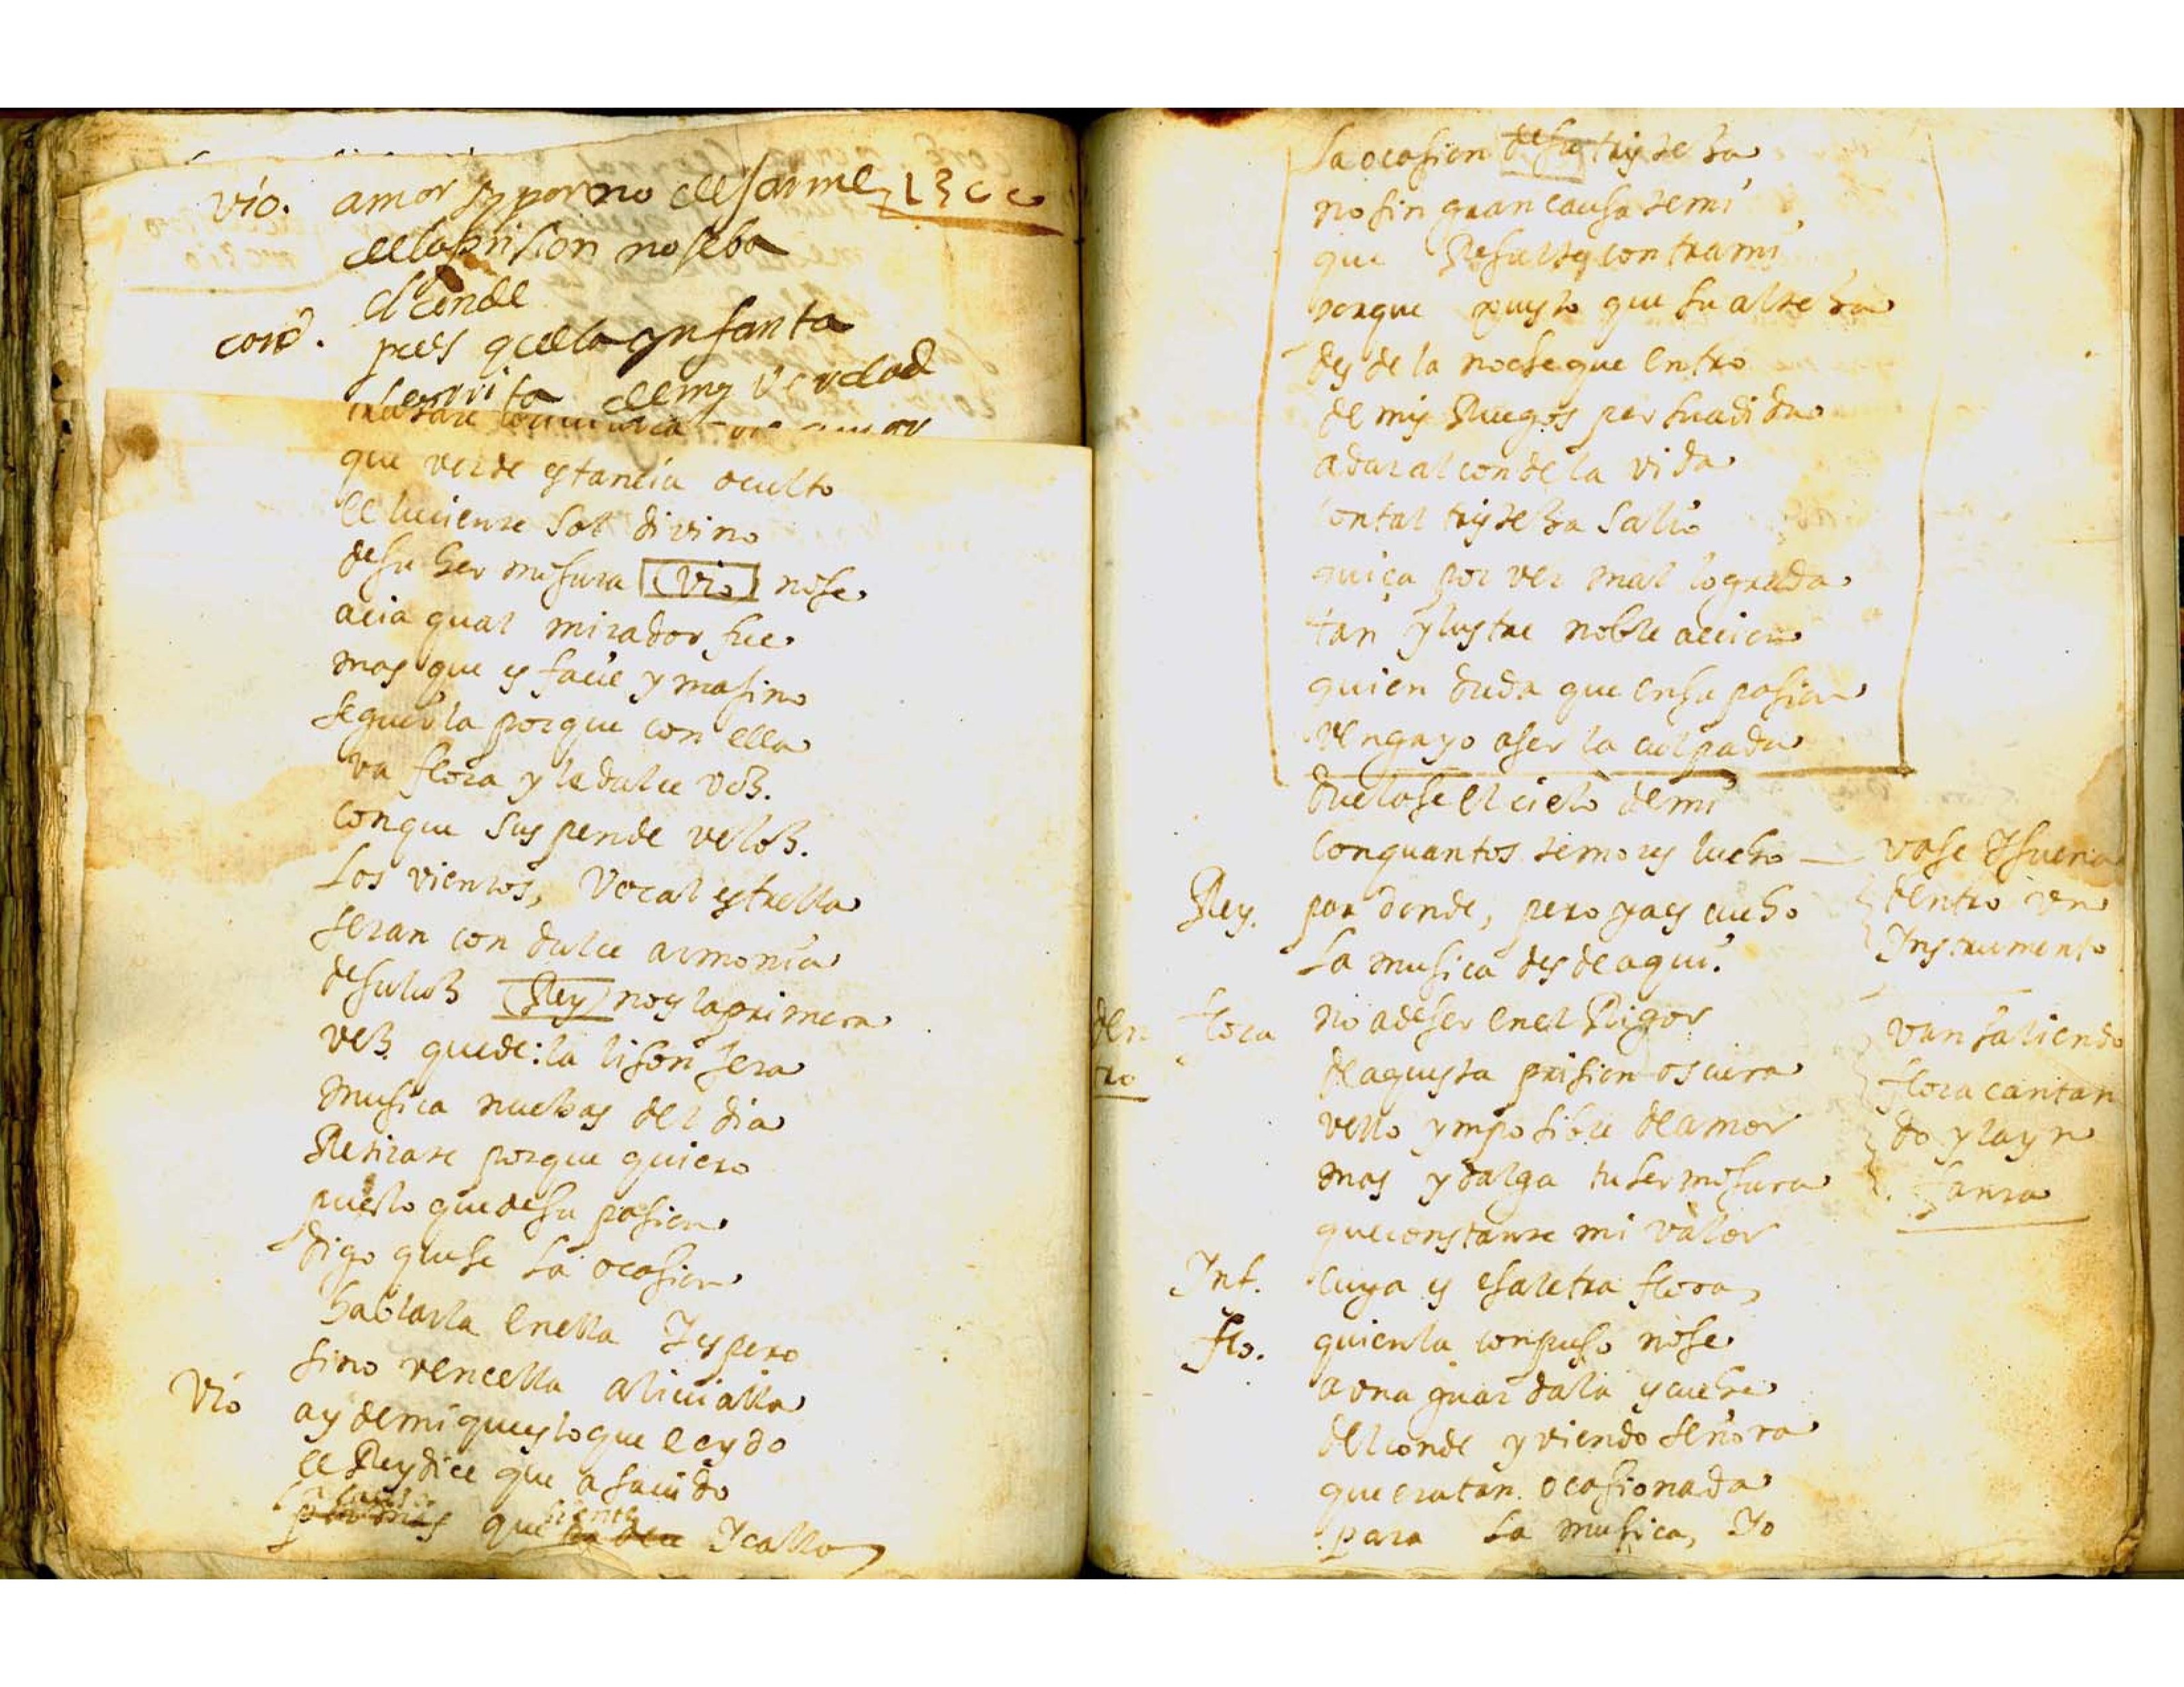 vio. amor y por no dessarme
de la prision no se ba
el conde
cond. pues que la ynfanta
demy verdad
que verde estancia oculto
el luciente sol divino
de su hermosura (vio) no se
acia qual mirador fue
mas que es facil ymasino
seguirla porque con ella
va flora y le dulce voz.
con que suspende veloz.
Los vientos, Vocal estrella
seran con dulce armonia
de su luz (Rey) no es la primera
vez que de: la lisonjera
musica nuebas del dia
Retirate porque quiero
puesto que de su pasion
digo que se La ocasion
hablarla en ella Y espero
sino vencella alivialla
Vio ay de mi que es lo que e oydo
el Rey dice que a savido
que siente Y calla
La ocasion de su tristeza
no sin gran causa temi
que Resulte contra mi
porque puesto que su alteza
desde la noche que entro
de mis Ruegos persuadida
a dar al conde la vida
con tal tristeza salio
quiça por ver mal lograda
tan ylustre noble accion
quien duda que en su pasion
venga yo a ser la culpada
duelase el cielo de mi
con quantos temores lucho — vase Y suena
Rey. por donde, pero ya escucho dentro un
La musica desde aqui. Instrumento
den flora no a de ser en el Rigor van saliendo
tro de aquesta prision oscura flora cantan
vello ymposible de amor do y la yn
mas ydalga tu hermosura fanta
que constante mi valor
Inf. cuya es esa letra flora
flo. quien la compuso no se
a una guarda la escuche
del conde y viendo señora
que era tan ocasionada
para La musica, Yo